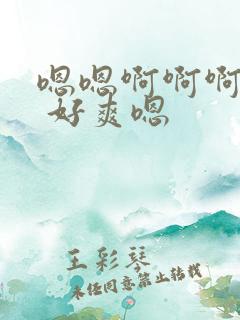 嗯嗯啊啊啊
好爽嗯
王彩琴
未经同意禁止转载